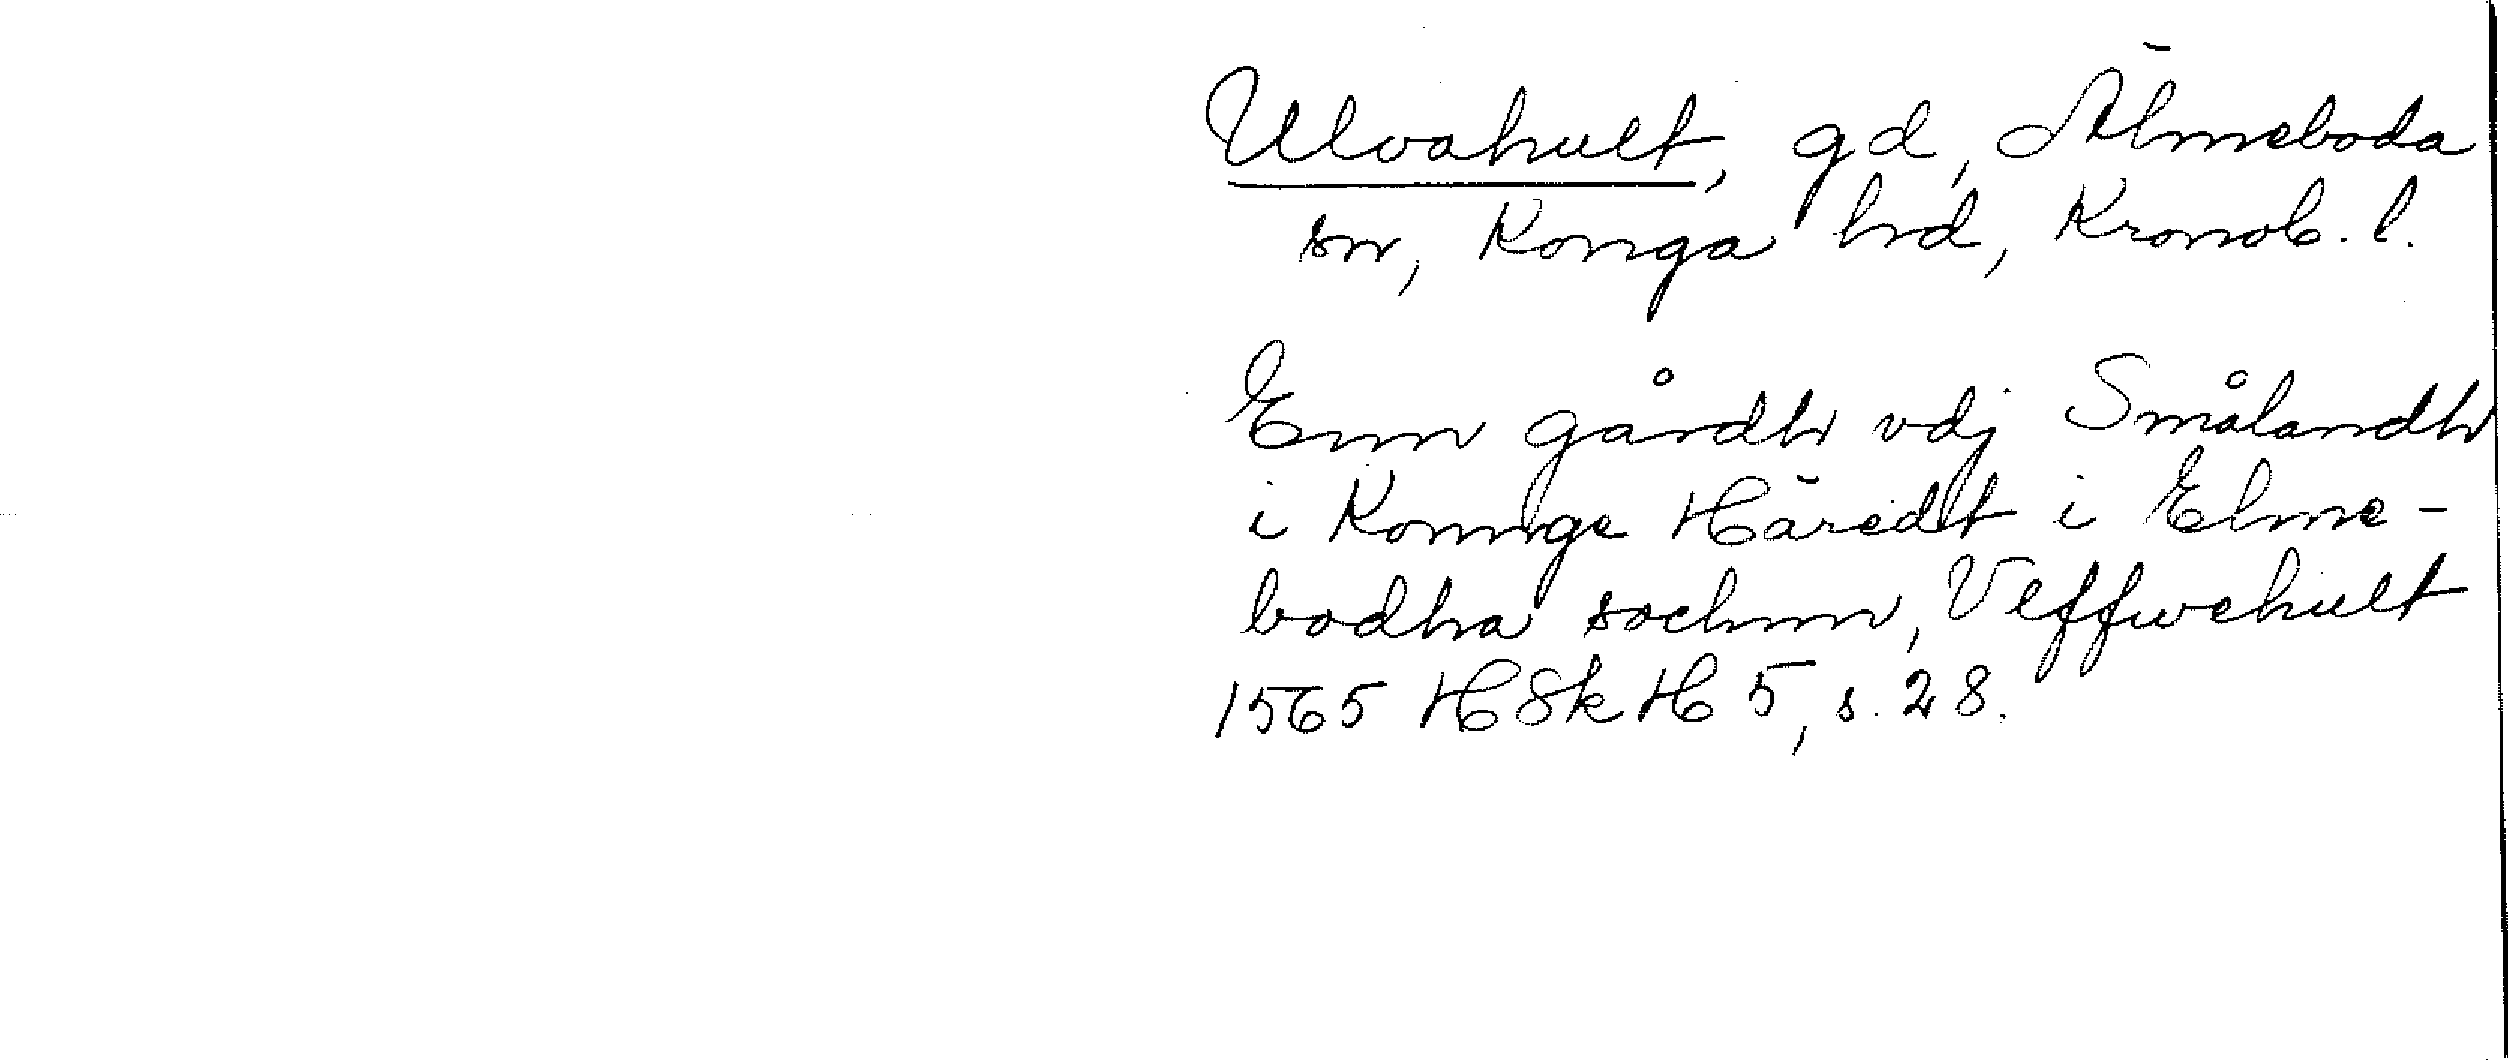 Ulvahult, gd, Älmeboda
sn, Konga hd, Kronob. l.
Enn gårdh vdj Smålandh
i Konnge Häredt i Elme-
bodha sochnn, Vlffwehult
1565 HSkH 5, s. 28.